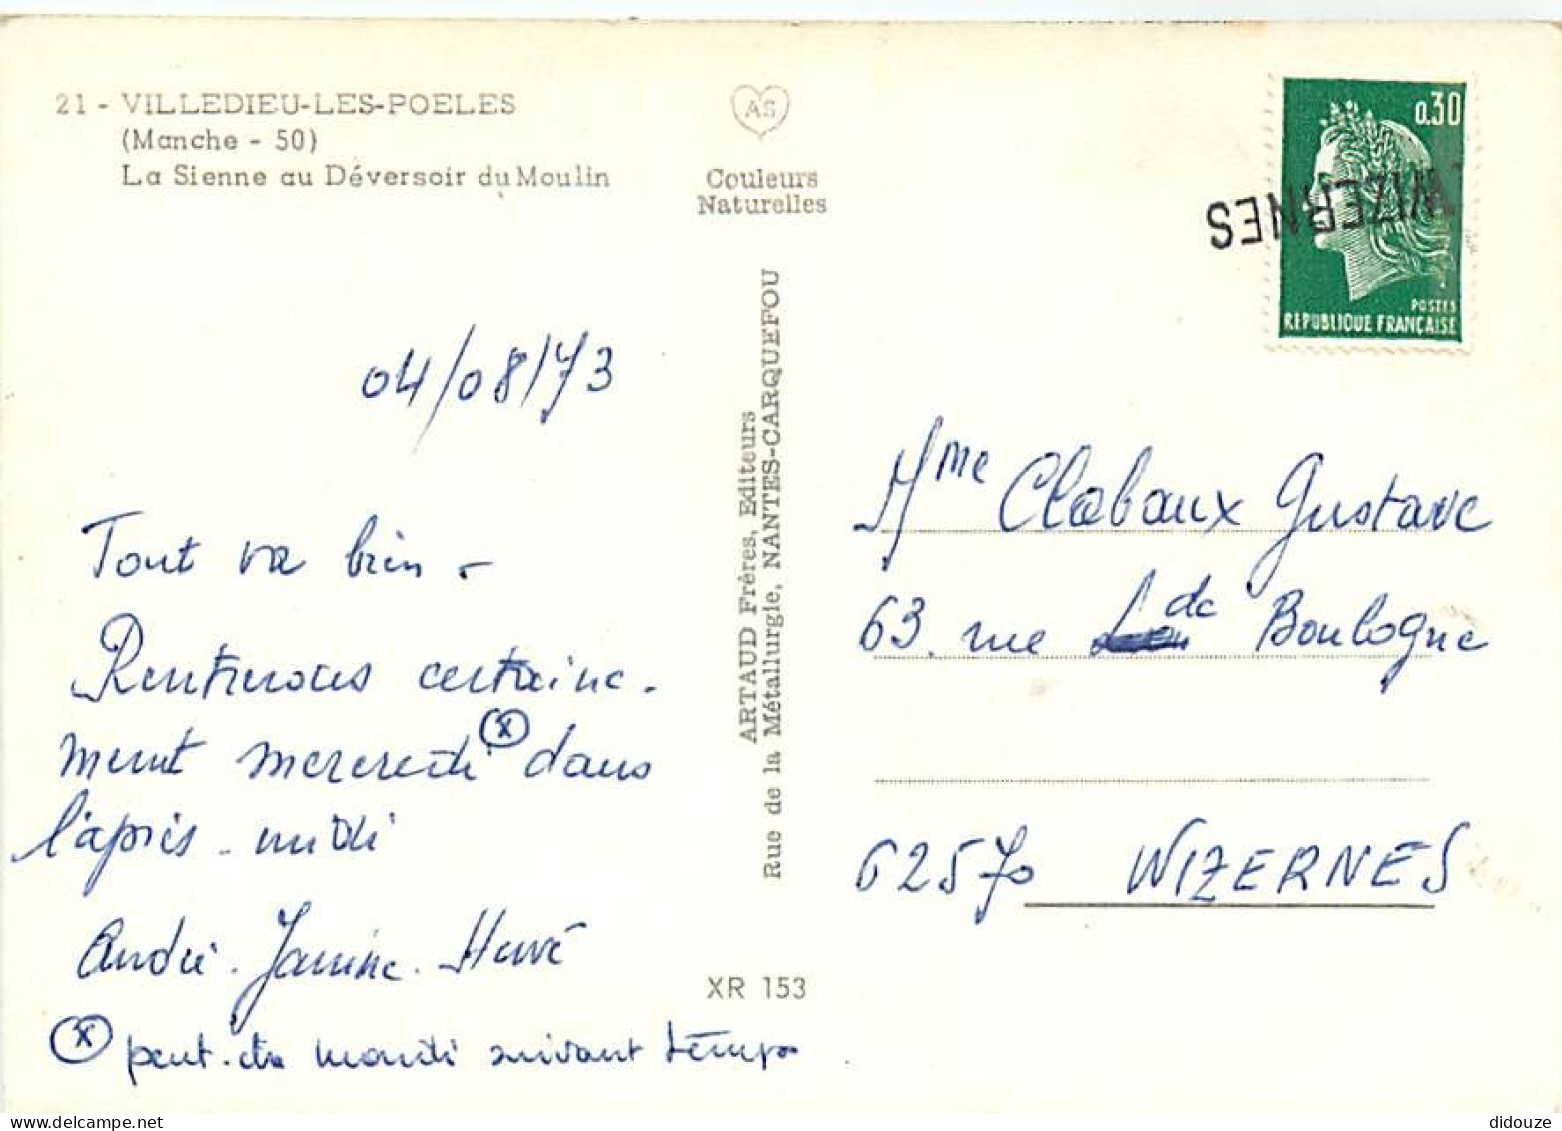 21 - VILLEDIEU-LES-POELES
(Manche - 50)
La Sienne au Déversoir du Moulin
AS
Couleurs
Naturelles
0,30
POSTES
REPUBLIQUE FRANÇAISE
WIZERNES
04/08/73
Tout va bien -
Rentrerons certaine-
ment mercredi (x) dans
l'après-midi
André. Janine. Hervé
(x) peut-être mardi suivant temps
ARTAUD Frères, Editeurs
Rue de la Métallurgie, NANTES-CARQUEFOU
XR 153
Mme Clabaux Gustave
63. rue de Boulogne
62570 WIZERNES
didouze